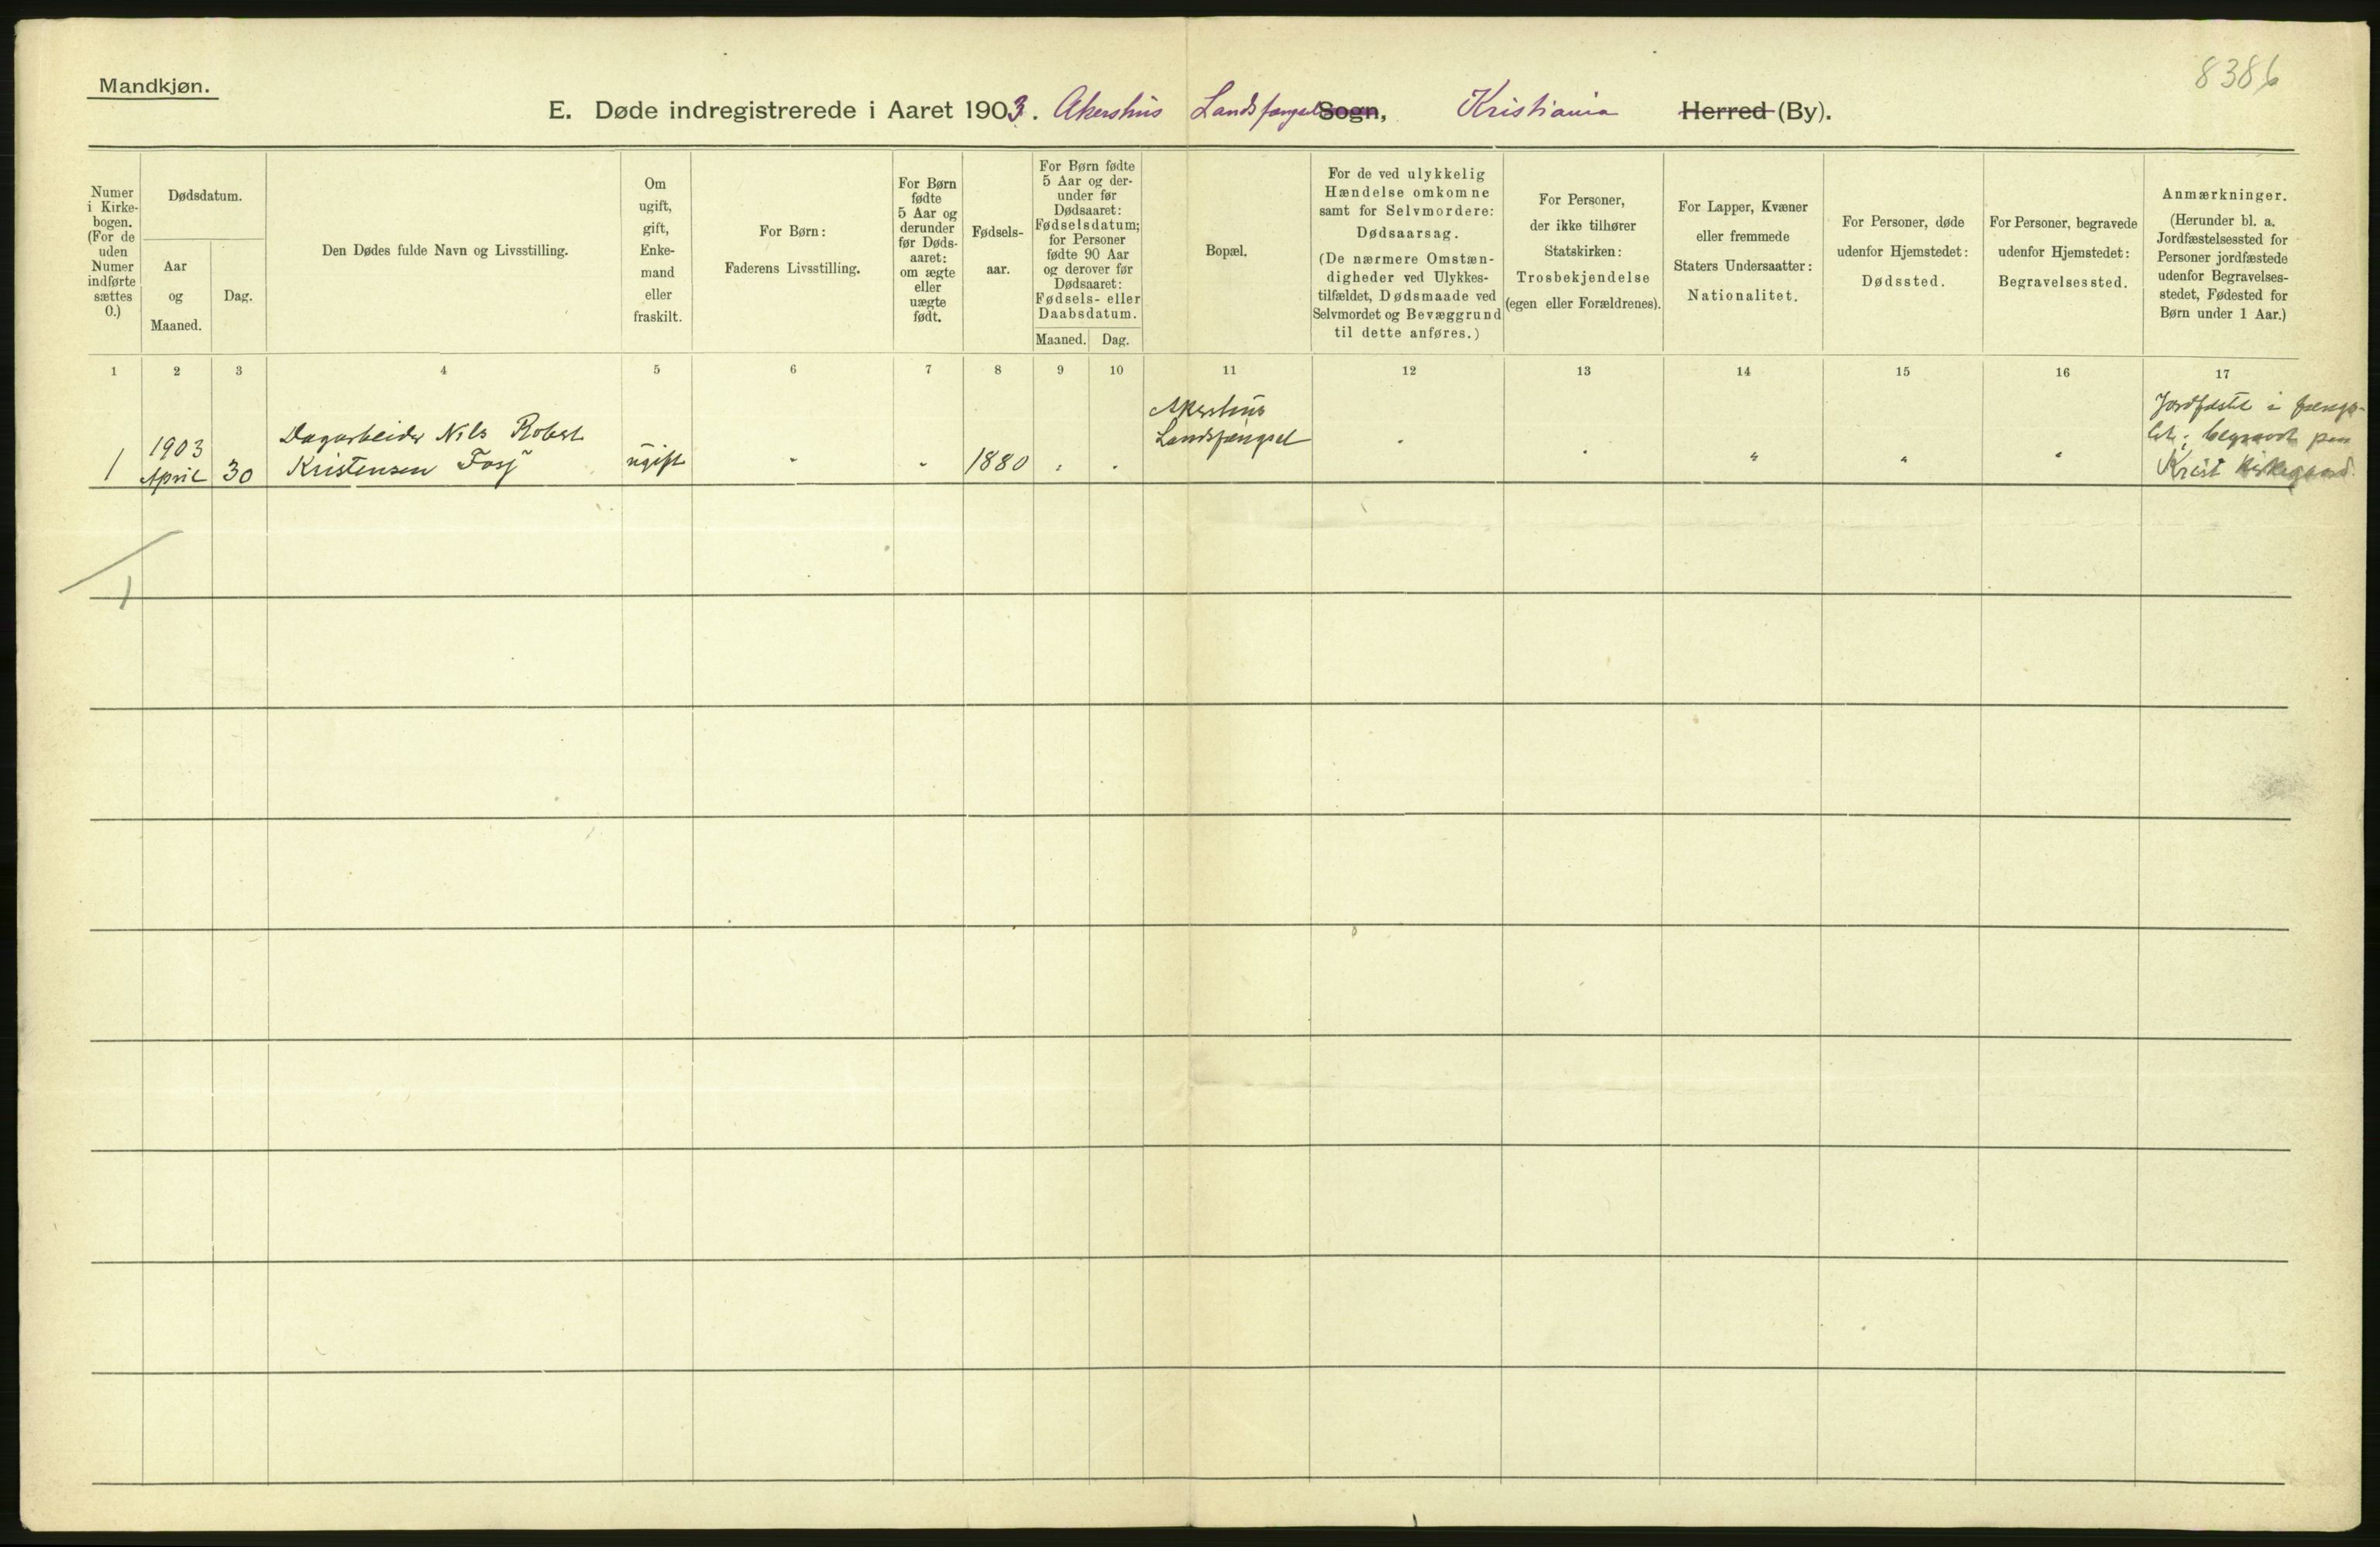 8386
Mandkjøn.
E. Døde indregistrerede i Aaret 1903. Akershus Landsfængsel Sogn, Kristiania Herred (By).
Numer
i Kirke-
bogen.
(For de
uden
Numer
indførte
sættes
0.)
Dødsdatum.
Aar
og
Maaned.
Dag.
Den Dødes fulde Navn og Livsstilling.
Om
ugift,
gift,
Enke-
mand
eller
fraskilt.
For Børn:
Faderens Livsstilling.
For Børn
fødte
5 Aar og
derunder
før Døds-
aaret:
om ægte
eller
uægte
født.
Fødsels-
aar.
For Børn fødte
5 Aar og der-
under før
Dødsaaret:
Fødselsdatum;
for Personer
fødte 90 Aar
og derover før
Dødsaaret:
Fødsels- eller
Daabsdatum.
Maaned. Dag.
Bopæl.
For de ved ulykkelig
Hændelse omkomne
samt for Selvmordere:
Dødsaarsag.
(De nærmere Omstæn-
digheder ved Ulykkes-
tilfældet, Dødsmaade ved
Selvmordet og Bevæggrund
til dette anføres.)
For Personer,
der ikke tilhører
Statskirken:
Trosbekjendelse
(egen eller Forældrenes).
For Lapper, Kvæner
eller fremmede
Staters Undersaatter:
Nationalitet.
For Personer, døde
udenfor Hjemstedet:
Dødssted.
For Personer, begravede
udenfor Hjemstedet:
Begravelsessted.
Anmærkninger.
(Herunder bl. a.
Jordfæstelsessted for
Personer jordfæstede
udenfor Begravelses-
stedet, Fødested for
Børn under 1 Aar.)
1 2 3 4 5 6 7 8 9 10 11 12 13 14 15 16 17
1
1903
April
30
Dagarbeider Nils Robert
Kristensen
ugift
-
"
1880
"
"
Akershus
Landsfængsel
"
"
"
"
"
Jordfæstet i fængs-
let; begravet paa
Krist Kirkegaard.
1